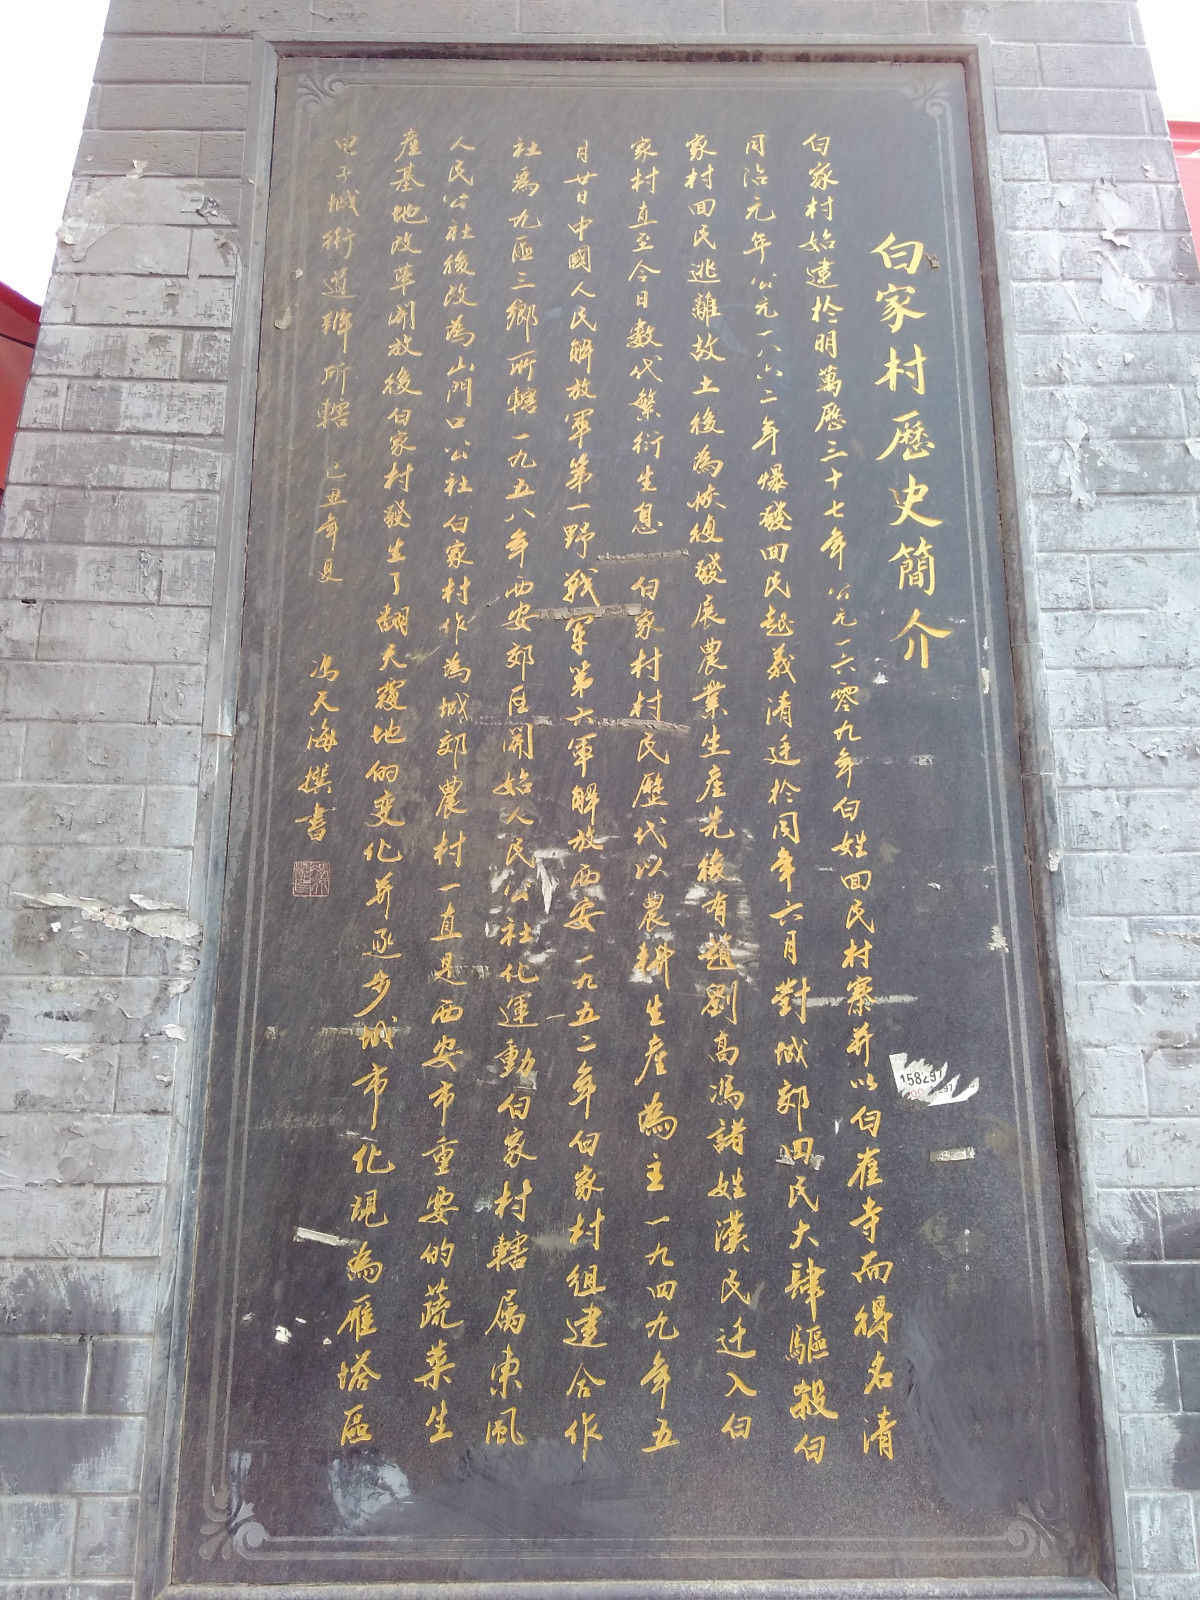 白家村歷史簡介
白家村始建於明萬歷三十七年公元一六零九年白姓回民村寨并以白雀寺而得名清
同治元年公元一八六二年爆發回民起義清廷於同年六月對城郊回民大肆驅殺白
家村回民逃離故土後為恢復發展農業生産先後有趙劉高馮諸姓漢民迁入白
家村直至今日數代繁衍生息 白家村村民歷代以農耕生産為主一九四九年五
月廿日中國人民解放軍第一野戰军第六軍解放西安一九五二年白家村組建合作
社為九區三鄉所轄一九五八年西安郊區開始人民公社化運動白家村轄属東風
人民公社後改為山門口公社白家村作為城郊農村一直是西安市重要的蔬菜生
産基地改革開放後白家村發生了翻天覆地的变化并逐步城市化現為雁塔區
电子城街道辦所轄 己丑年夏
馮天海撰書
158297